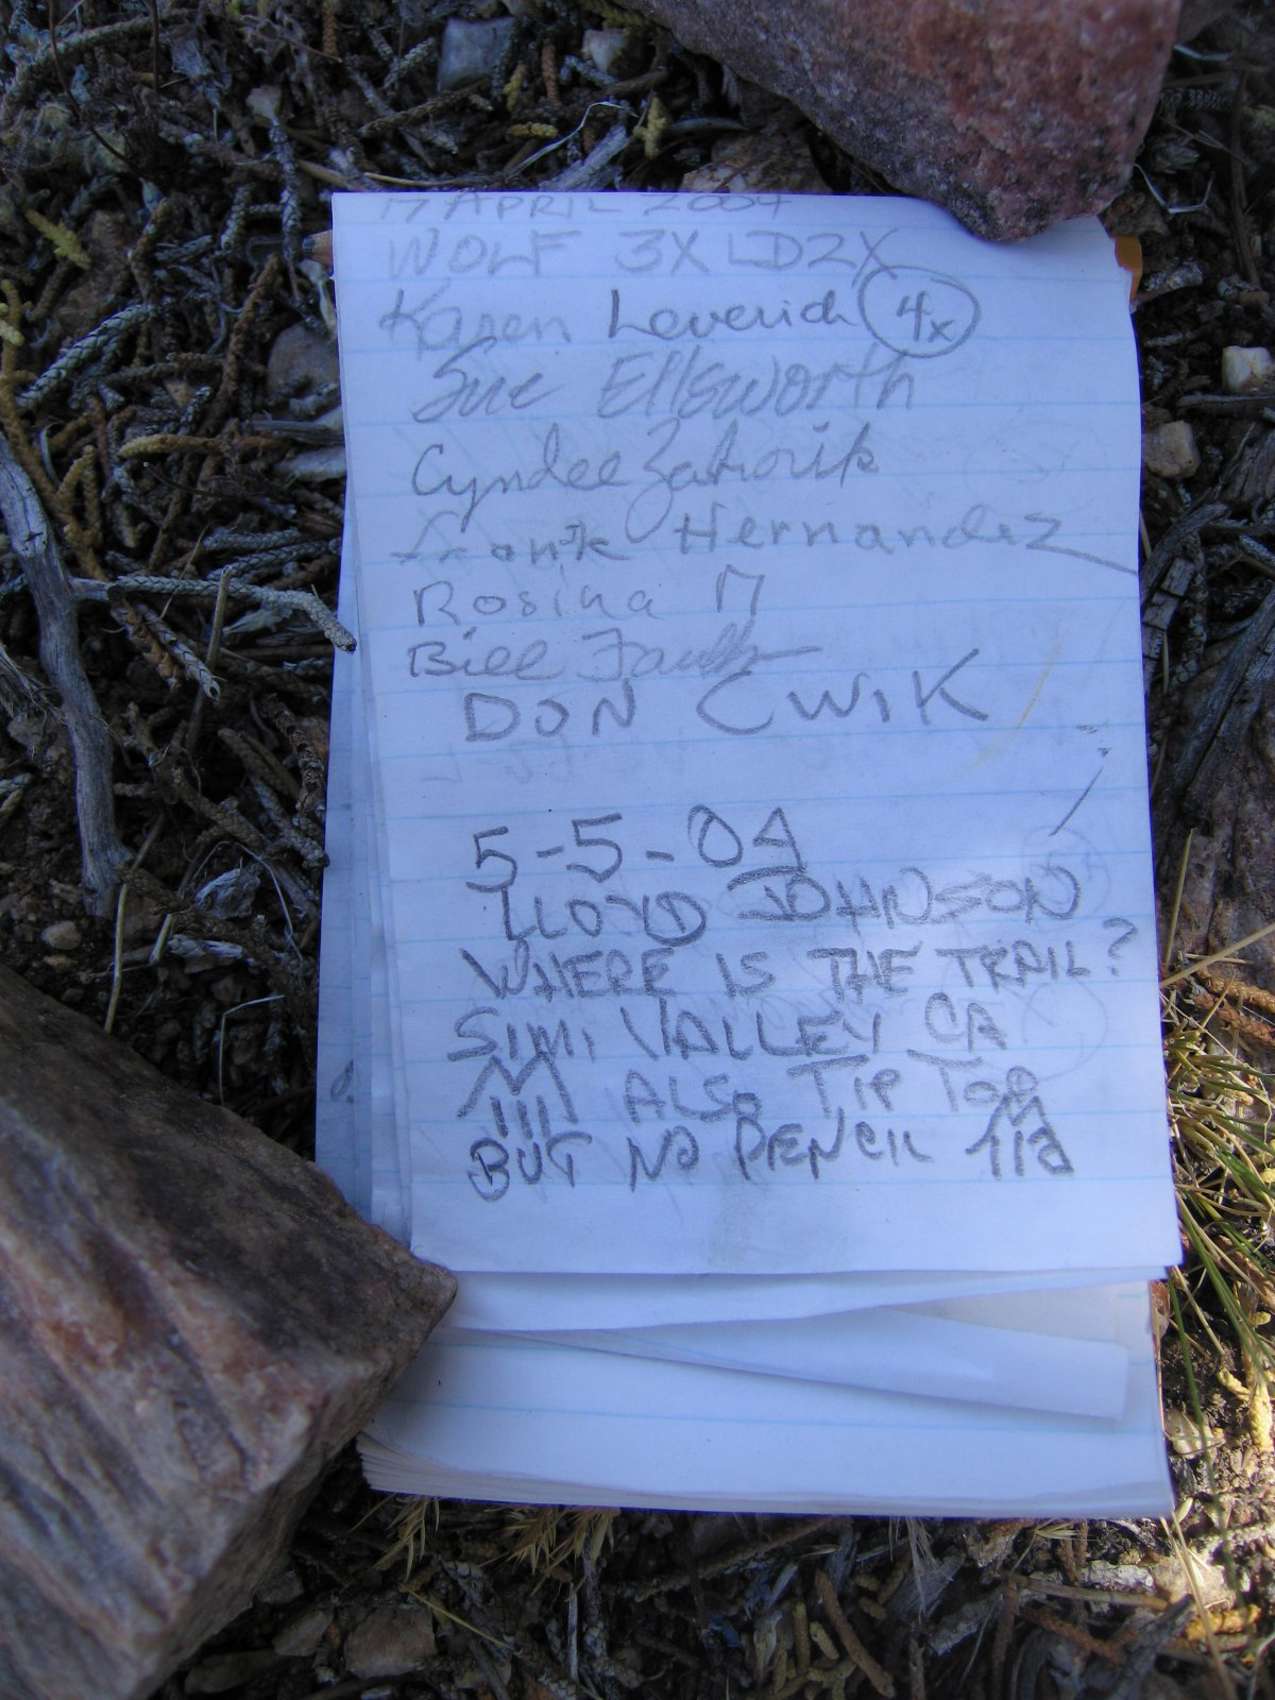 17 APRIL 2004
WOLF 3X LD2X
Karen Leverich 4x
Sue Ellsworth
Cyndee Zahorik
Frank Hernandez
Rosina M
Bill
DON CWIK
5-5-04
LLOYD JOHNSON
WHERE IS THE TRAIL?
SIMI VALLEY CA
ALSO TIP TOP
BUT NO PENCIL